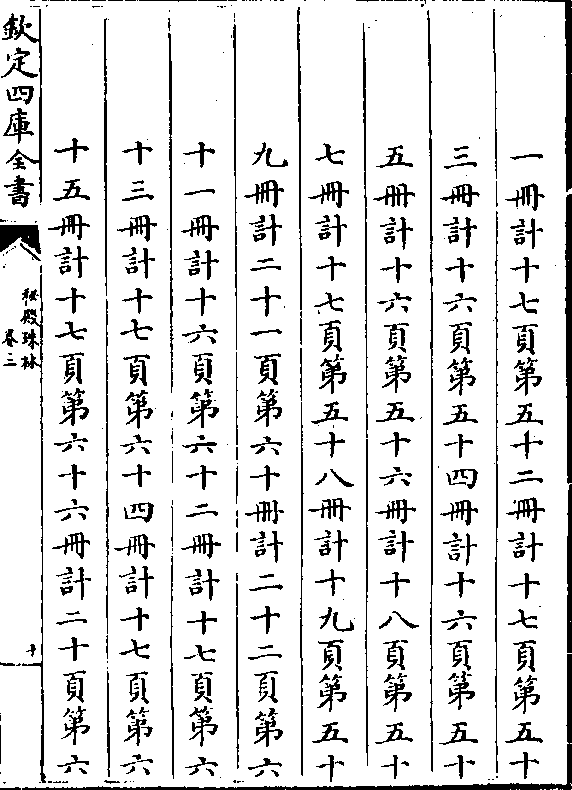 一冊計十七頁第五十二冊計十七頁第五十
三冊計十六頁第五十四冊計十六頁第五十
五冊計十六頁第五十六冊計十八頁第五十
七冊計十七頁第五十八冊計十九頁第五十
九冊計二十一頁第六十冊計二十二頁第六
十一冊計十六頁第六十二冊計十七頁第六
十三冊計十七頁第六十四冊計十七頁第六
十五冊計十七頁第六十六冊計二十頁第六
欽定四庫全書
秘殿珠林
卷二
十